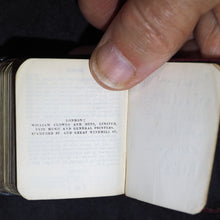 LONDON:
WILLIAM CLOWES AND SONS, LIMITED,
TYPE MUSIC AND GENERAL PRINTERS,
STAMFORD ST. AND GREAT WINDMILL ST.